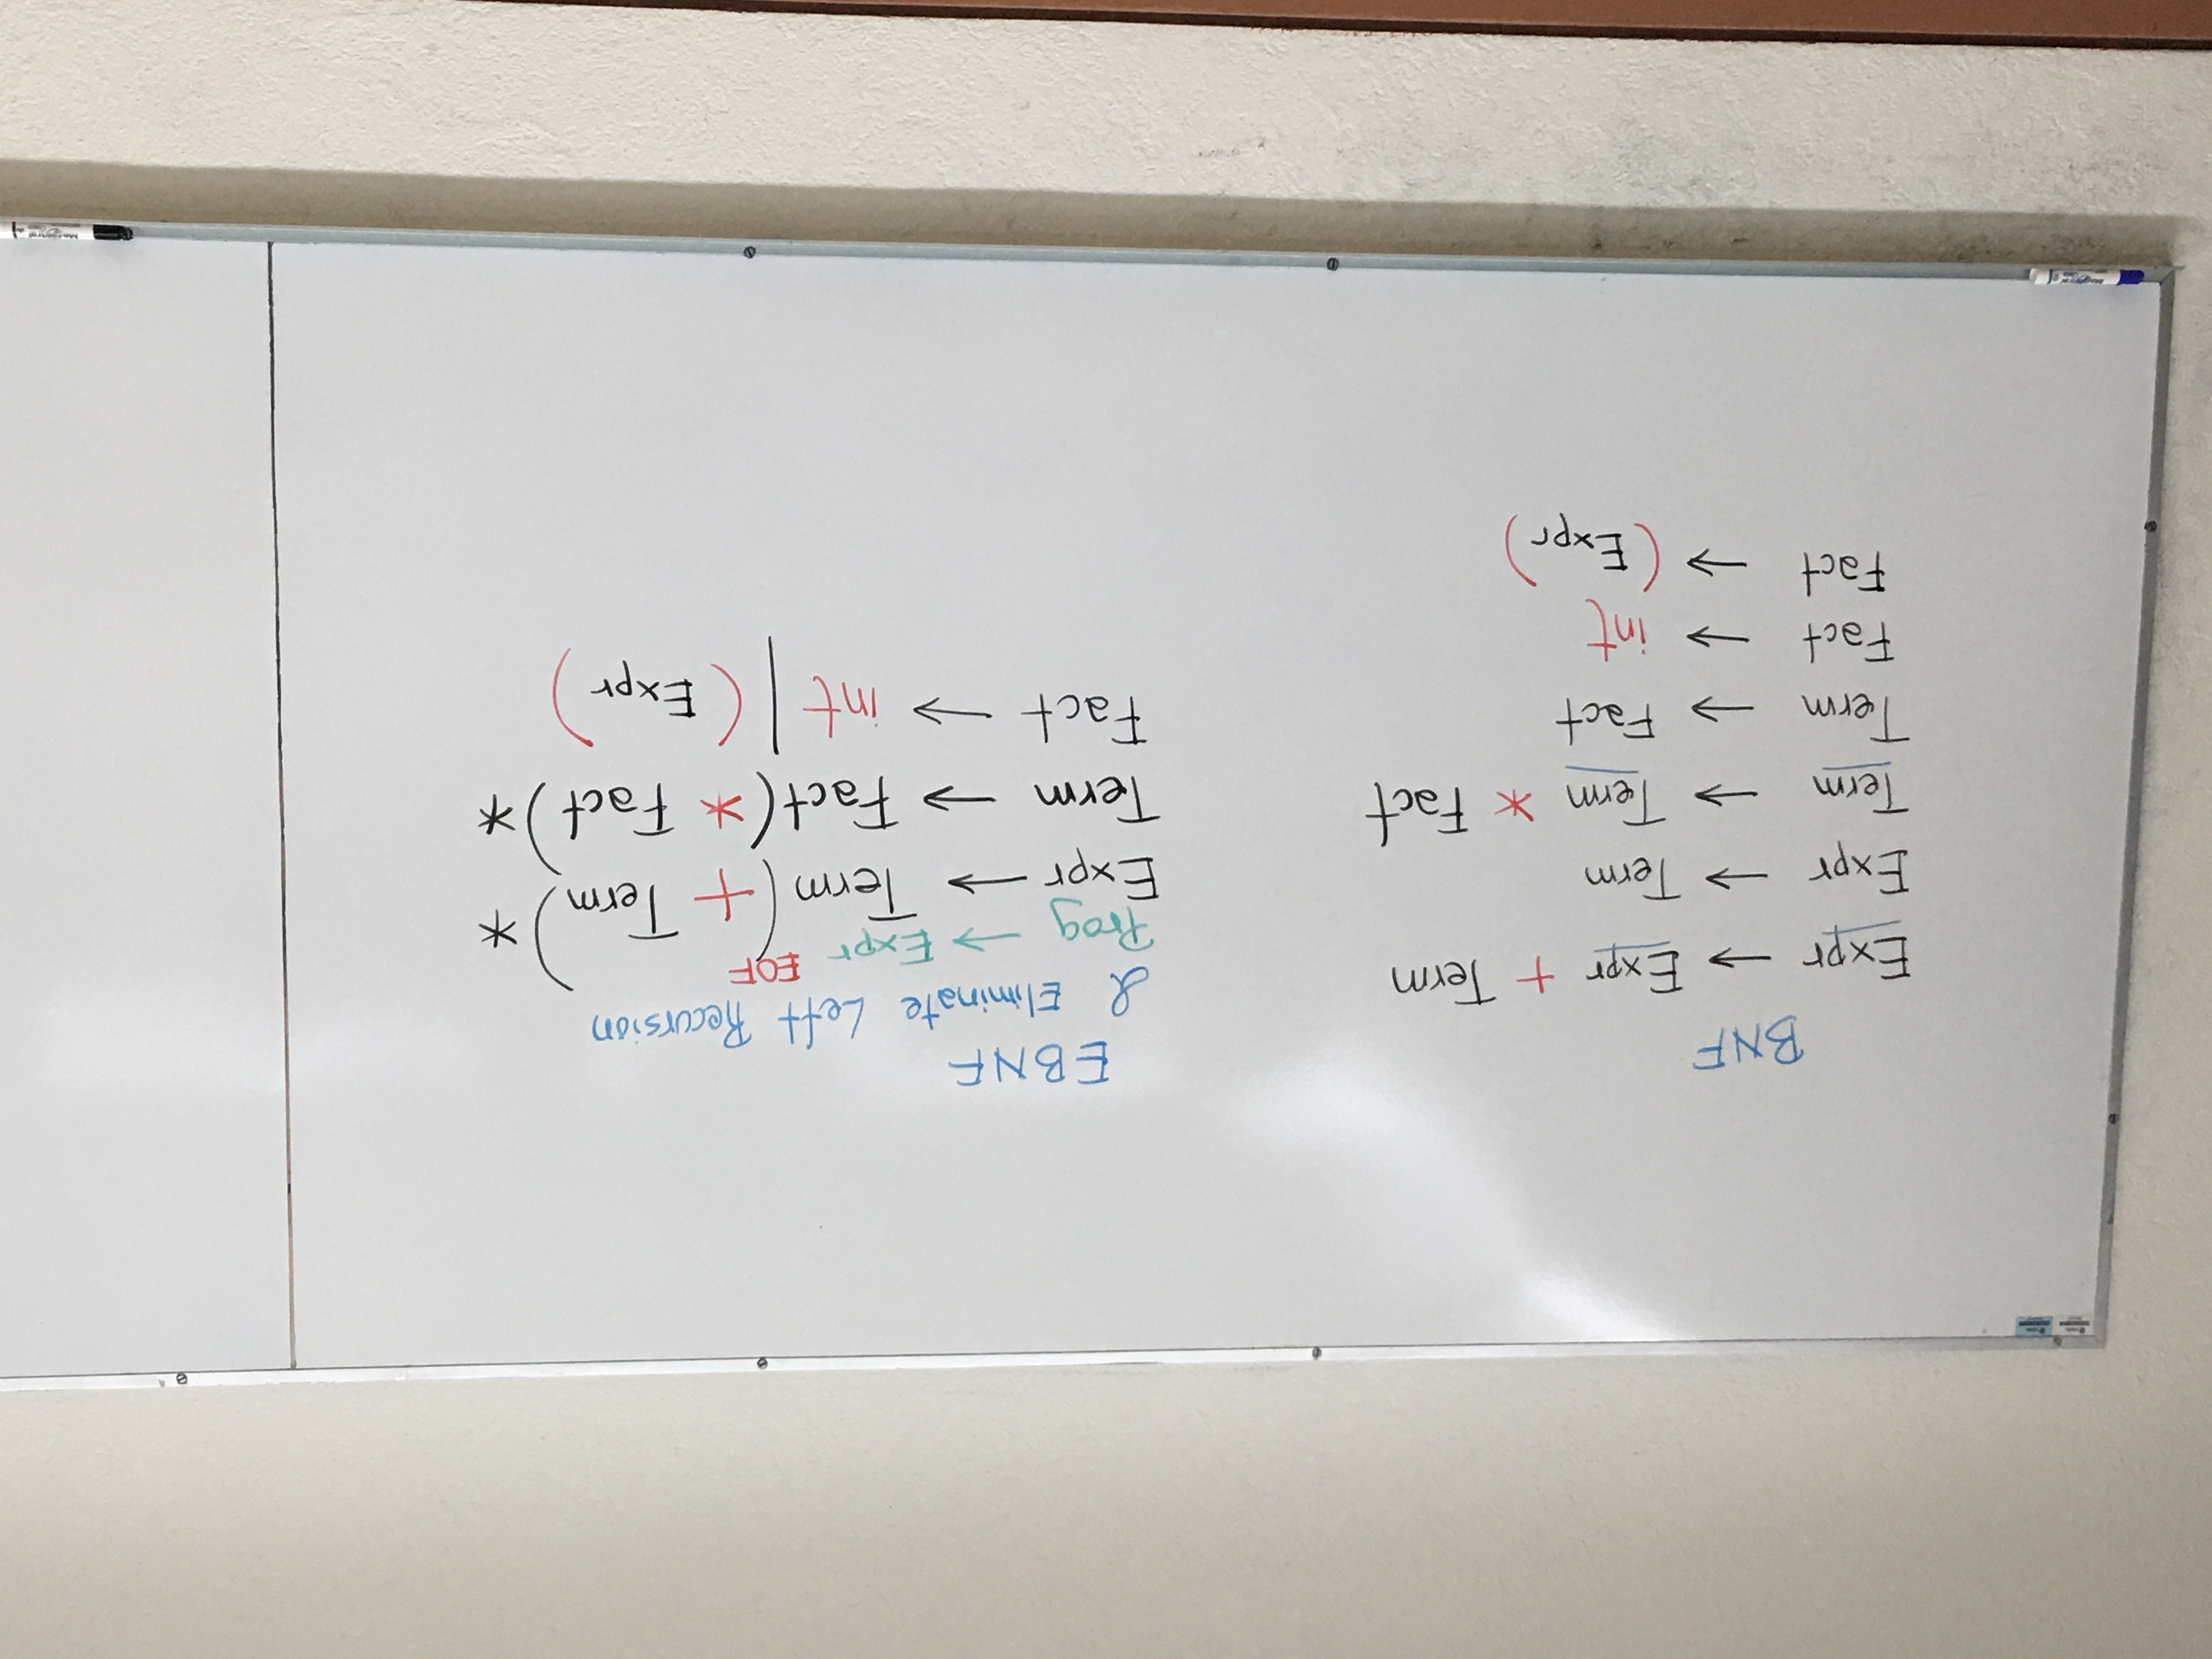 BNF
Expr → Expr + Term
Expr → Term
Term → Term * Fact
Term → Fact
Fact → int
Fact → (Expr)
EBNF
& Eliminate Left Recursion
Prog → Expr EOF
Expr → Term (+ Term)*
Term → Fact (* Fact)*
Fact → int | (Expr)